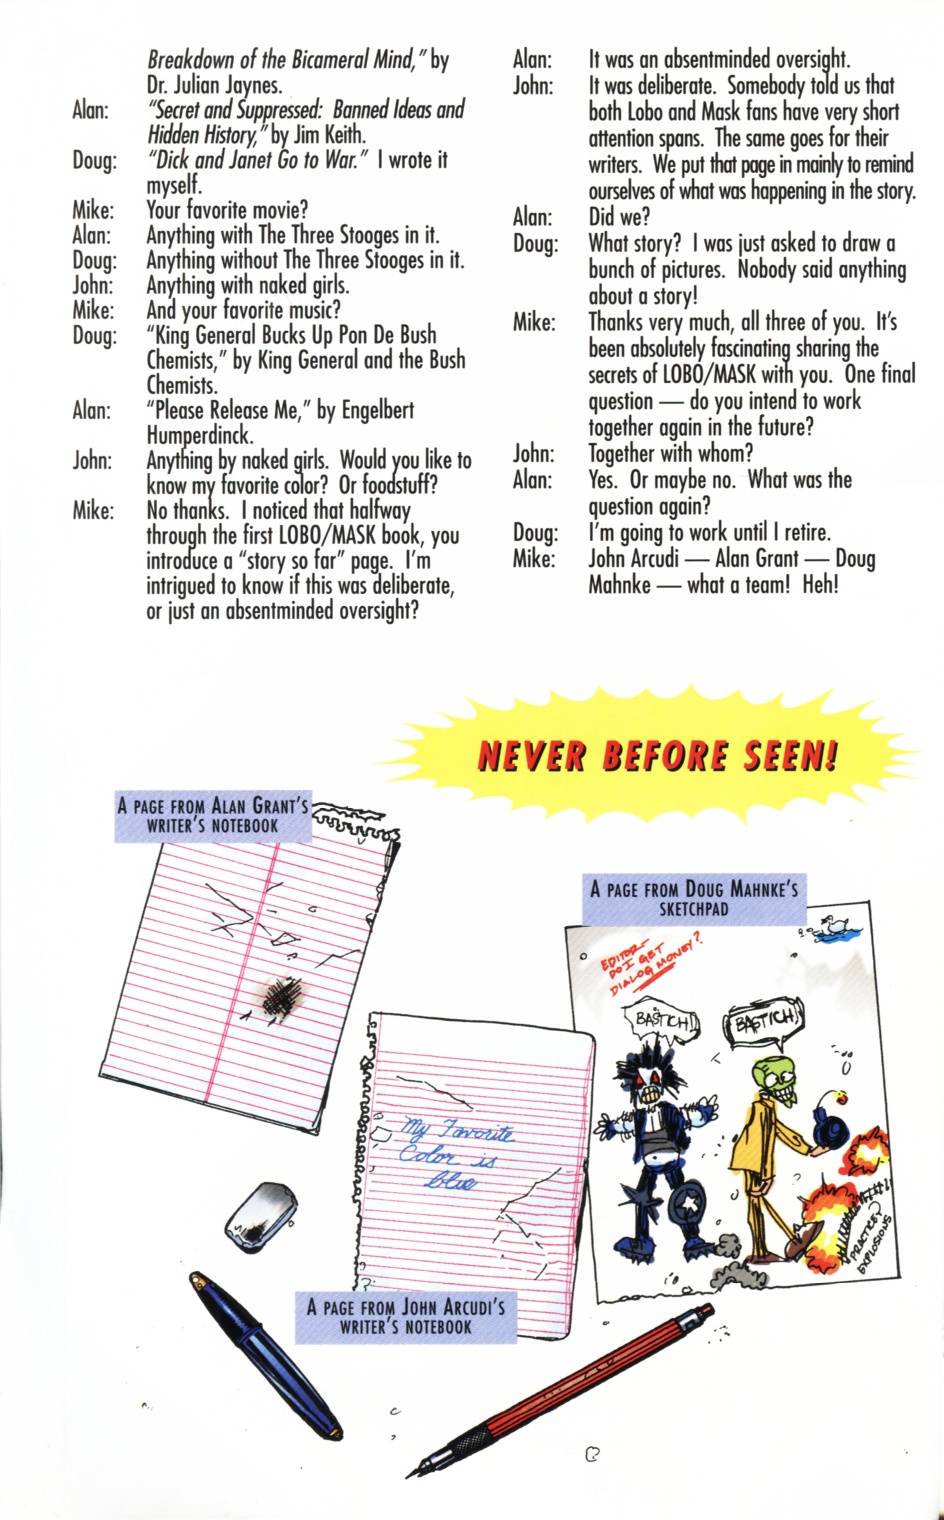 Breakdown of the Bicameral Mind," by
Dr. Julian Jaynes.
Alan: "Secret and Suppressed: Banned Ideas and
Hidden History," by Jim Keith.
Doug: "Dick and Janet Go to War." I wrote it
myself.
Mike: Your favorite movie?
Alan: Anything with The Three Stooges in it.
Doug: Anything without The Three Stooges in it.
John: Anything with naked girls.
Mike: And your favorite music?
Doug: "King General Bucks Up Pon De Bush
Chemists," by King General and the Bush
Chemists.
Alan: "Please Release Me," by Engelbert
Humperdinck.
John: Anything by naked girls. Would you like to
know my favorite color? Or foodstuff?
Mike: No thanks. I noticed that halfway
through the first LOBO/MASK book, you
introduce a "story so far" page. I'm
intrigued to know if this was deliberate,
or just an absentminded oversight?
Alan: It was an absentminded oversight.
John: It was deliberate. Somebody told us that
both Lobo and Mask fans have very short
attention spans. The same goes for their
writers. We put that page in mainly to remind
ourselves of what was happening in the story.
Alan: Did we?
Doug: What story? I was just asked to draw a
bunch of pictures. Nobody said anything
about a story!
Mike: Thanks very much, all three of you. It's
been absolutely fascinating sharing the
secrets of LOBO/MASK with you. One final
question — do you intend to work
together again in the future?
John: Together with whom?
Alan: Yes. Or maybe no. What was the
question again?
Doug: I'm going to work until I retire.
Mike: John Arcudi — Alan Grant — Doug
Mahnke — what a team! Heh!
NEVER BEFORE SEEN!
A PAGE FROM ALAN GRANT'S
WRITER'S NOTEBOOK
A PAGE FROM DOUG MAHNKE'S
SKETCHPAD
EDITOR-
DO I GET
DIALOG MONEY?
BASTICH!
BASTICH!
PRACTICE
EXPLOSIONS
My Favorite
Color is
blue
A PAGE FROM JOHN ARCUDI'S
WRITER'S NOTEBOOK